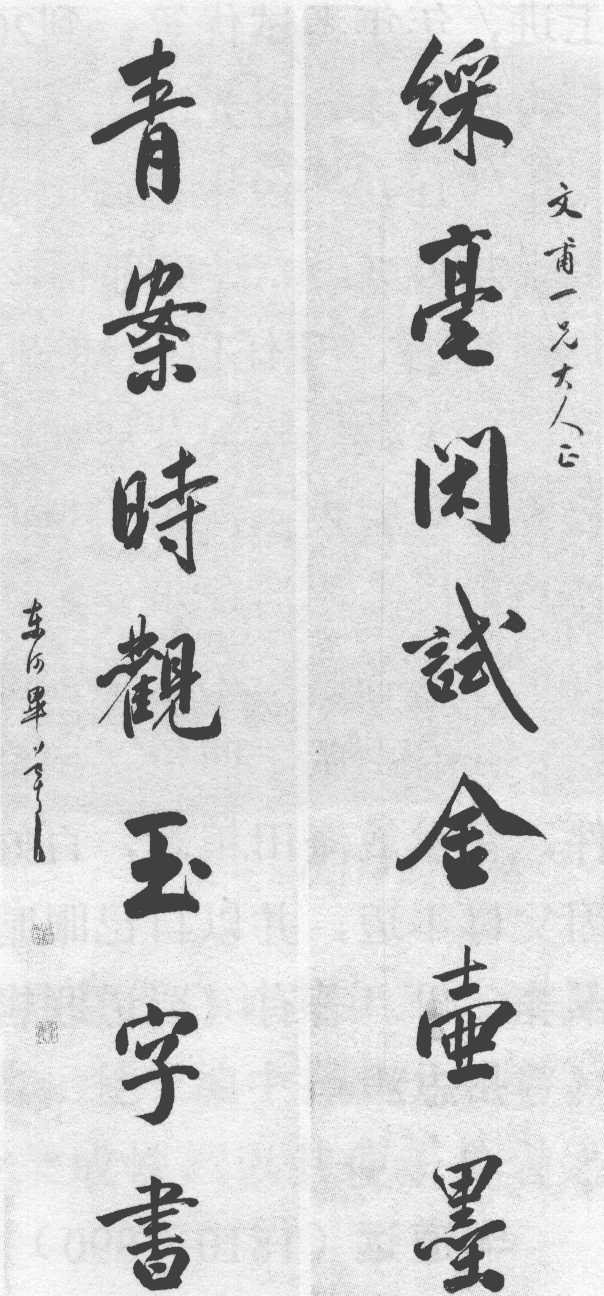 文甫一兄大人正
綵毫閑試金壺墨
青案時觀玉字書
东河畢